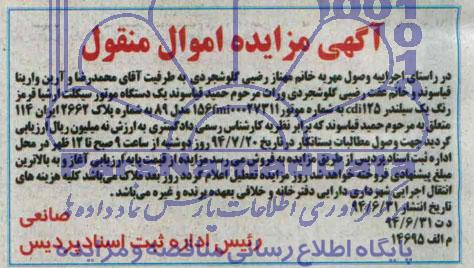 آگهی مزایده اموال منقول
در راستای اجرائیه وصول مهریه خانم مهناز رضیی گلوشجردی به طرفیت آقای محمدرضا و آرین وارینا
قیاسوند و خانم عفت رضیی گلوشجردی وراث مرحوم حمید قیاسوند یک دستگاه موتور سیکلت ارشیا قرمز
رنگ تک سیلندر cdi125 به شماره موتور 156fmi000027311 مدل 89 به شماره پلاک 12662 ایران 114
متعلق به مرحوم حمید قیاسوند که برابر نظریه کارشناس رسمی دادگستری به ارزش نه میلیون ریال ارزیابی
گردید جهت وصول مطالبات بستانکار در تاریخ 94/7/20 روز دوشنبه از ساعت 9 صبح تا 12 ظهر در محل
اداره ثبت اسناد پردیس از طریق مزایده به فروش می رسد مزایده از قیمت پایه ارزیابی آغاز و به بالاترین
مبلغ پیشنهادی فروخته خواهد شد مزایده تعطیل اعلام گردد روز بعد ملاک می باشد کلیه هزینه های
انتقال اجرایی شهرداری دارایی دفترخانه و خلافی بعهده برنده و غیره می باشد.
تاریخ انتشار 94/6/31
94/6/31
م الف 14695
صانعی
رئیس اداره ثبت اسناد پردیس
پایگاه اطلاع رسانی مناقصه و مزایده